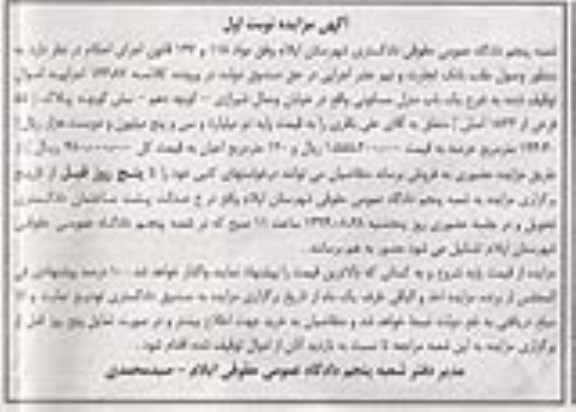 آگهی مزایده نوبت اول
شعبه پنجم دادگاه عمومی حقوقی دادگستری شهرستان ایلام وفق مواد و ۱۳۷ قانون اجرای احکام در نظر دارد به
منظور وصول طلب بانک تجارت و نیم عشر اجرایی در حق صندوق دولت در پرونده کلاسه اجراییه اموال
توقیف شده به شرح یک باب منزل مسکونی واقع در خیابان شیرازی - کوچه دهم - کوچه پلاک
فرعی از اصلی متعلق به آقای علی باقری را به قیمت پایه دو میلیارد و سی و پنج میلیون و دویست هزار ریال
مترمربع عرصه به قیمت ریال و ۱۴۰ مترمربع اعیان به قیمت کل ریال از
طریق مزایده حضوری به فروش برساند متقاضیان می توانند درخواستهای کتبی خود را تا پنج روز قبل از تاریخ
برگزاری مزایده به شعبه پنجم دادگاه عمومی حقوقی شهرستان ایلام واقع در خ عدالت پشت ساختمان دادگستری
تحویل و در جلسه حضوری روز پنجشنبه ساعت ۱۱ صبح که در شعبه پنجم دادگاه عمومی حقوقی
شهرستان ایلام تشکیل می شود حضور به هم برسانند
مزایده از قیمت پایه شروع و به کسانی که بالاترین قیمت را پیشنهاد نمایند واگذار خواهد شد ۱۰ درصد پیشنهادی فی
المجلس از برنده مزایده اخذ و الباقی ظرف یک ماه از تاریخ برگزاری مزایده به صندوق دادگستری تودیع نمایند و الا
مبلغ دریافتی به نفع دولت ضبط خواهد شد و متقاضیان به خرید جهت اطلاع بیشتر و در صورت تمایل پنج روز قبل از
برگزاری مزایده به این شعبه مراجعه تا نسبت به بازدید آنان از اموال توقیف شده اقدام شود
مدیر دفتر شعبه پنجم دادگاه عمومی حقوقی ایلام - صیدمحمدی